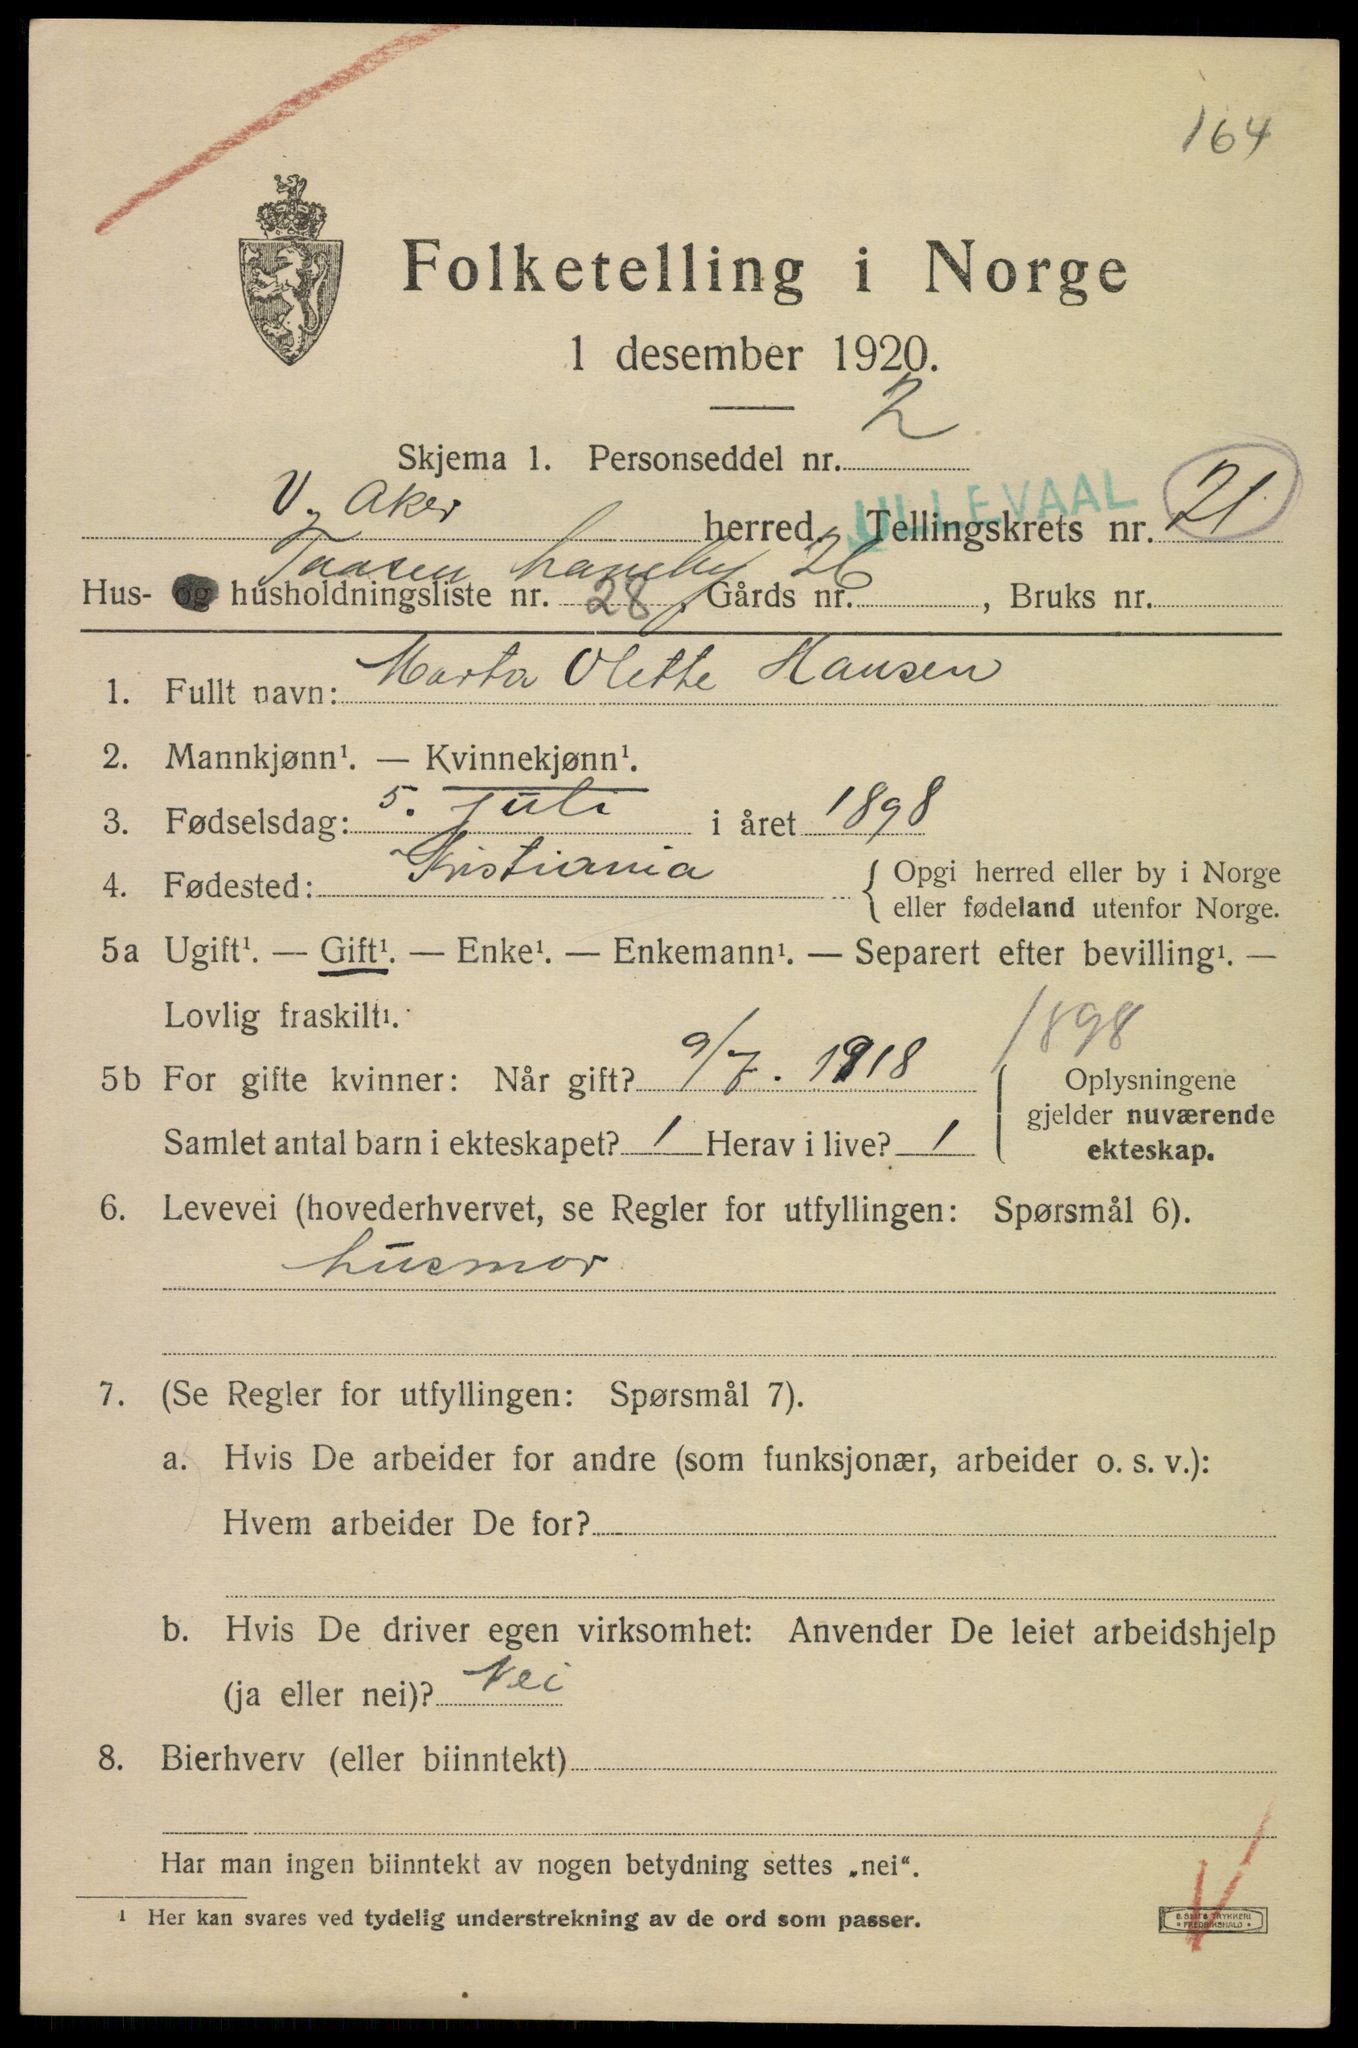 164
Folketelling i Norge
1 desember 1920.
Skjema 1. Personseddel nr. 2
V. Aker herred. ULLEVAAL Tellingskrets nr. 21
Taasen haveby 26
Hus- og husholdningsliste nr. 28, Gårds nr. , Bruks nr.
1. Fullt navn: Marta Olette Hansen
2. Mannkjønn¹. — Kvinnekjønn¹.
3. Fødselsdag: 5. juli i året 1898
4. Fødested: Kristiania { Opgi herred eller by i Norge
eller fødeland utenfor Norge.
5a Ugift¹. — Gift¹. — Enke¹. — Enkemann¹. — Separert efter bevilling¹. —
Lovlig fraskilt¹.
1898
5b For gifte kvinner: Når gift? 9/7. 1918 { Oplysningene
gjelder nuværende
Samlet antal barn i ekteskapet? 1 Herav i live? 1 ekteskap.
6. Levevei (hovederhvervet, se Regler for utfyllingen: Spørsmål 6).
husmor
7. (Se Regler for utfyllingen: Spørsmål 7).
a. Hvis De arbeider for andre (som funksjonær, arbeider o. s. v.):
Hvem arbeider De for?
b. Hvis De driver egen virksomhet: Anvender De leiet arbeidshjelp
(ja eller nei)? Nei
8. Bierhverv (eller biinntekt)
Har man ingen biinntekt av nogen betydning settes „nei“.
¹ Her kan svares ved tydelig understrekning av de ord som passer.
E. SEM'S TRYKKERI
FREDRIKSHALD